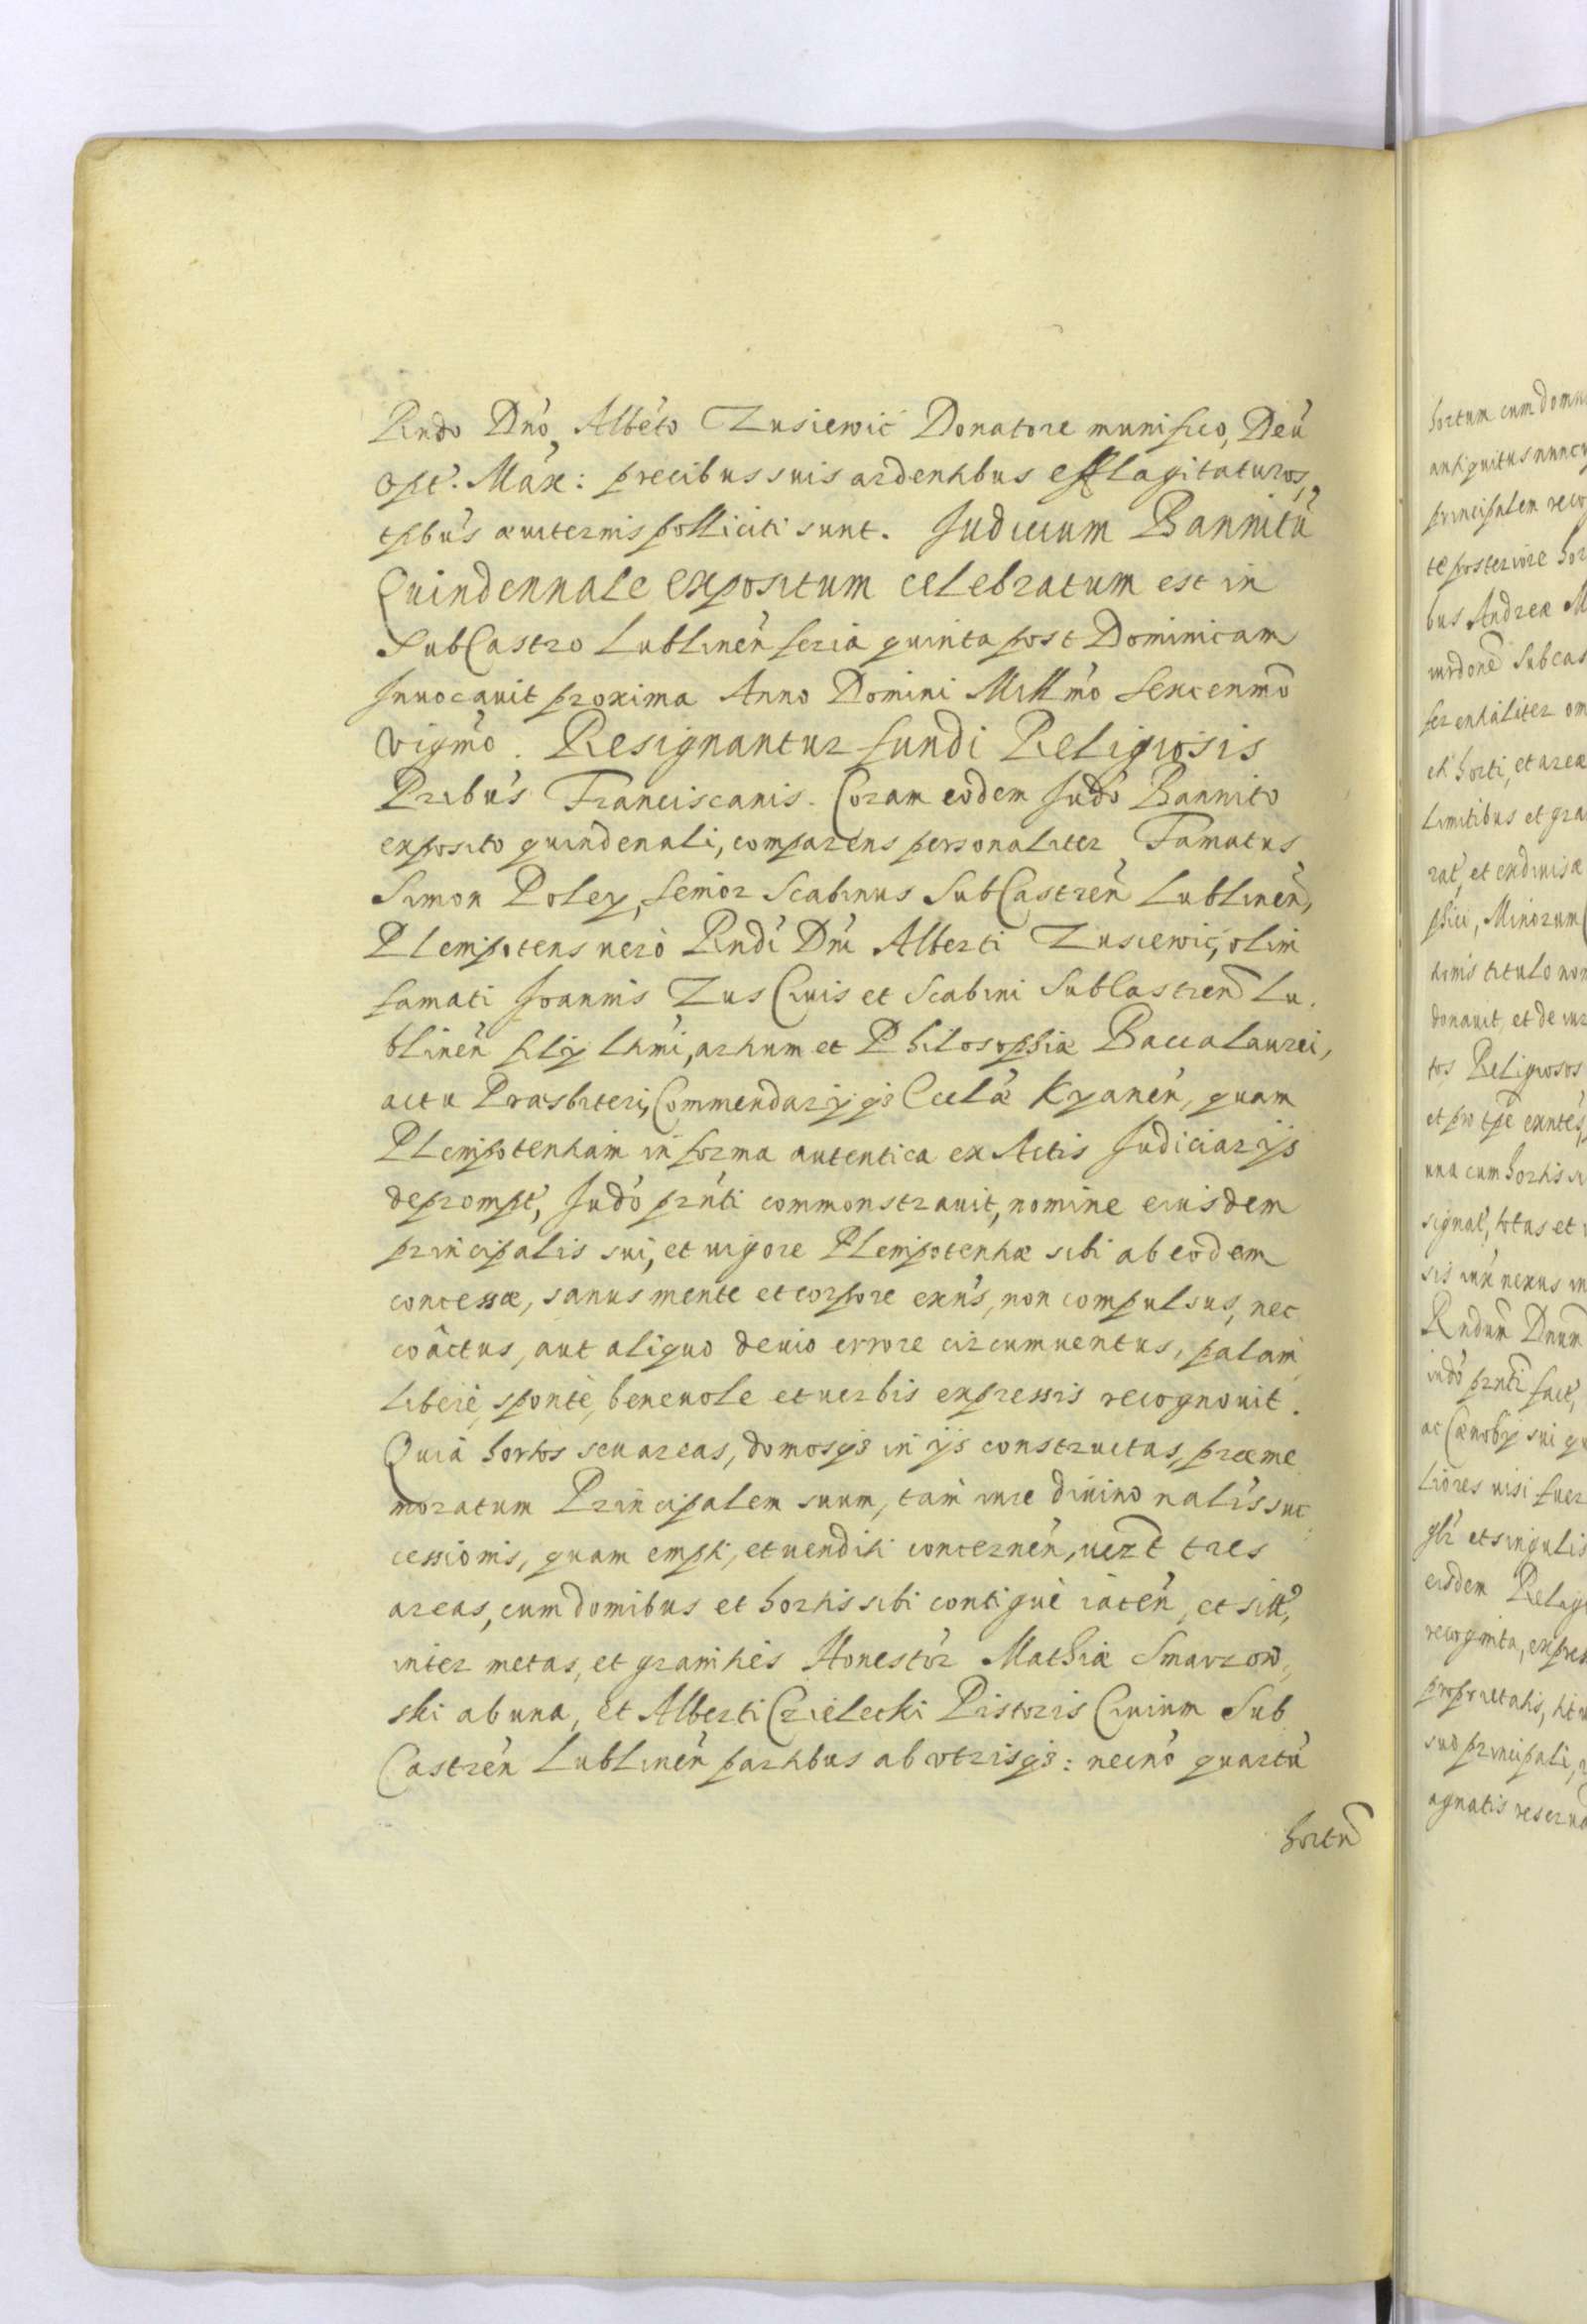 Rndo Dno Albeto Zusiewic Donatore munifico, Deu
Opt. Max: precibus suis ardentibus efflagitaturos,
tpbus æuiternis polliciti sunt. Judicium Bannitu
Quindennale expositum celebratum est in
SubCastro Lublinen feria quinta post Dominicam
Inuocauit proxima Anno Domini Millmo Sexcenmo
vigmo. Resignantur fundi Religiosis
Pribus Franciscanis. Coram eodem Judo Bannito
exposito quindenali, comparens personaliter Famatus
Simon Poley, senior Scabinus SubCastren Lublinen,
Plenipotens uero Rndi Dni Alberti Zusiewic, olim
famati Joannis Zus Ciuis et Scabini SubCastren Lu.
blinen filij lñmi, artium et Philosophiæ Baccalaurei,
actu Præsbiteri, Commendarijq3 Cclæ Kyanen, quam
Plenipotentiam in forma autentica ex Actis Judiciarijs
deprompt, Judo prnti commonstrauit, nomine eiusdem
principalis sui, et uigore Plenipotentiæ sibi ab eodem
concessæ, sanus mente et corpore exns, non compulsus, nec
coactus, aut aliquo deuio errore circumuentus, palam
libere, sponte, beneuole et uerbis expressis recognouit.
Quia hortos seu areas, domosq3 in ijs constructas, præme
moratum Principalem suum, tam iure diuino nalis suc
cessionis, quam empti, et uenditi concernen, uerzt tres
areas, cum domibus et hortis sibi contigue iacen, et sitt,
inter metas, et granities Honestor Mathiæ Smarzow,
ski ab una, et Alberti Czielecki Pistoris Ciuium Sub
Castren Lublinen partibus ab vtrisq3: necno quartu
hortu
hortum cum domu
antiquitus nuncu
principalem reco
te posteriore hor
bus Andreæ M
iurdone Subcas
ferentialiter om
eti horti, et areæ
limitibus et gra
rat, et exdiuisæ
phici, Minorum
tionis titulo non
donauit, et de iur
tos Religiosos
et pro tpe exntes,
una cum hortis si
signat, totas et
sis iuri nexus in
Rndum Dnum
iudo prnti fact,
ac Cænobij sui qu
liores uisi fuer
glr et singulis
eisdem Religi
recognita, expres
proprietatis, tit
suo principali,
agnatis reserua